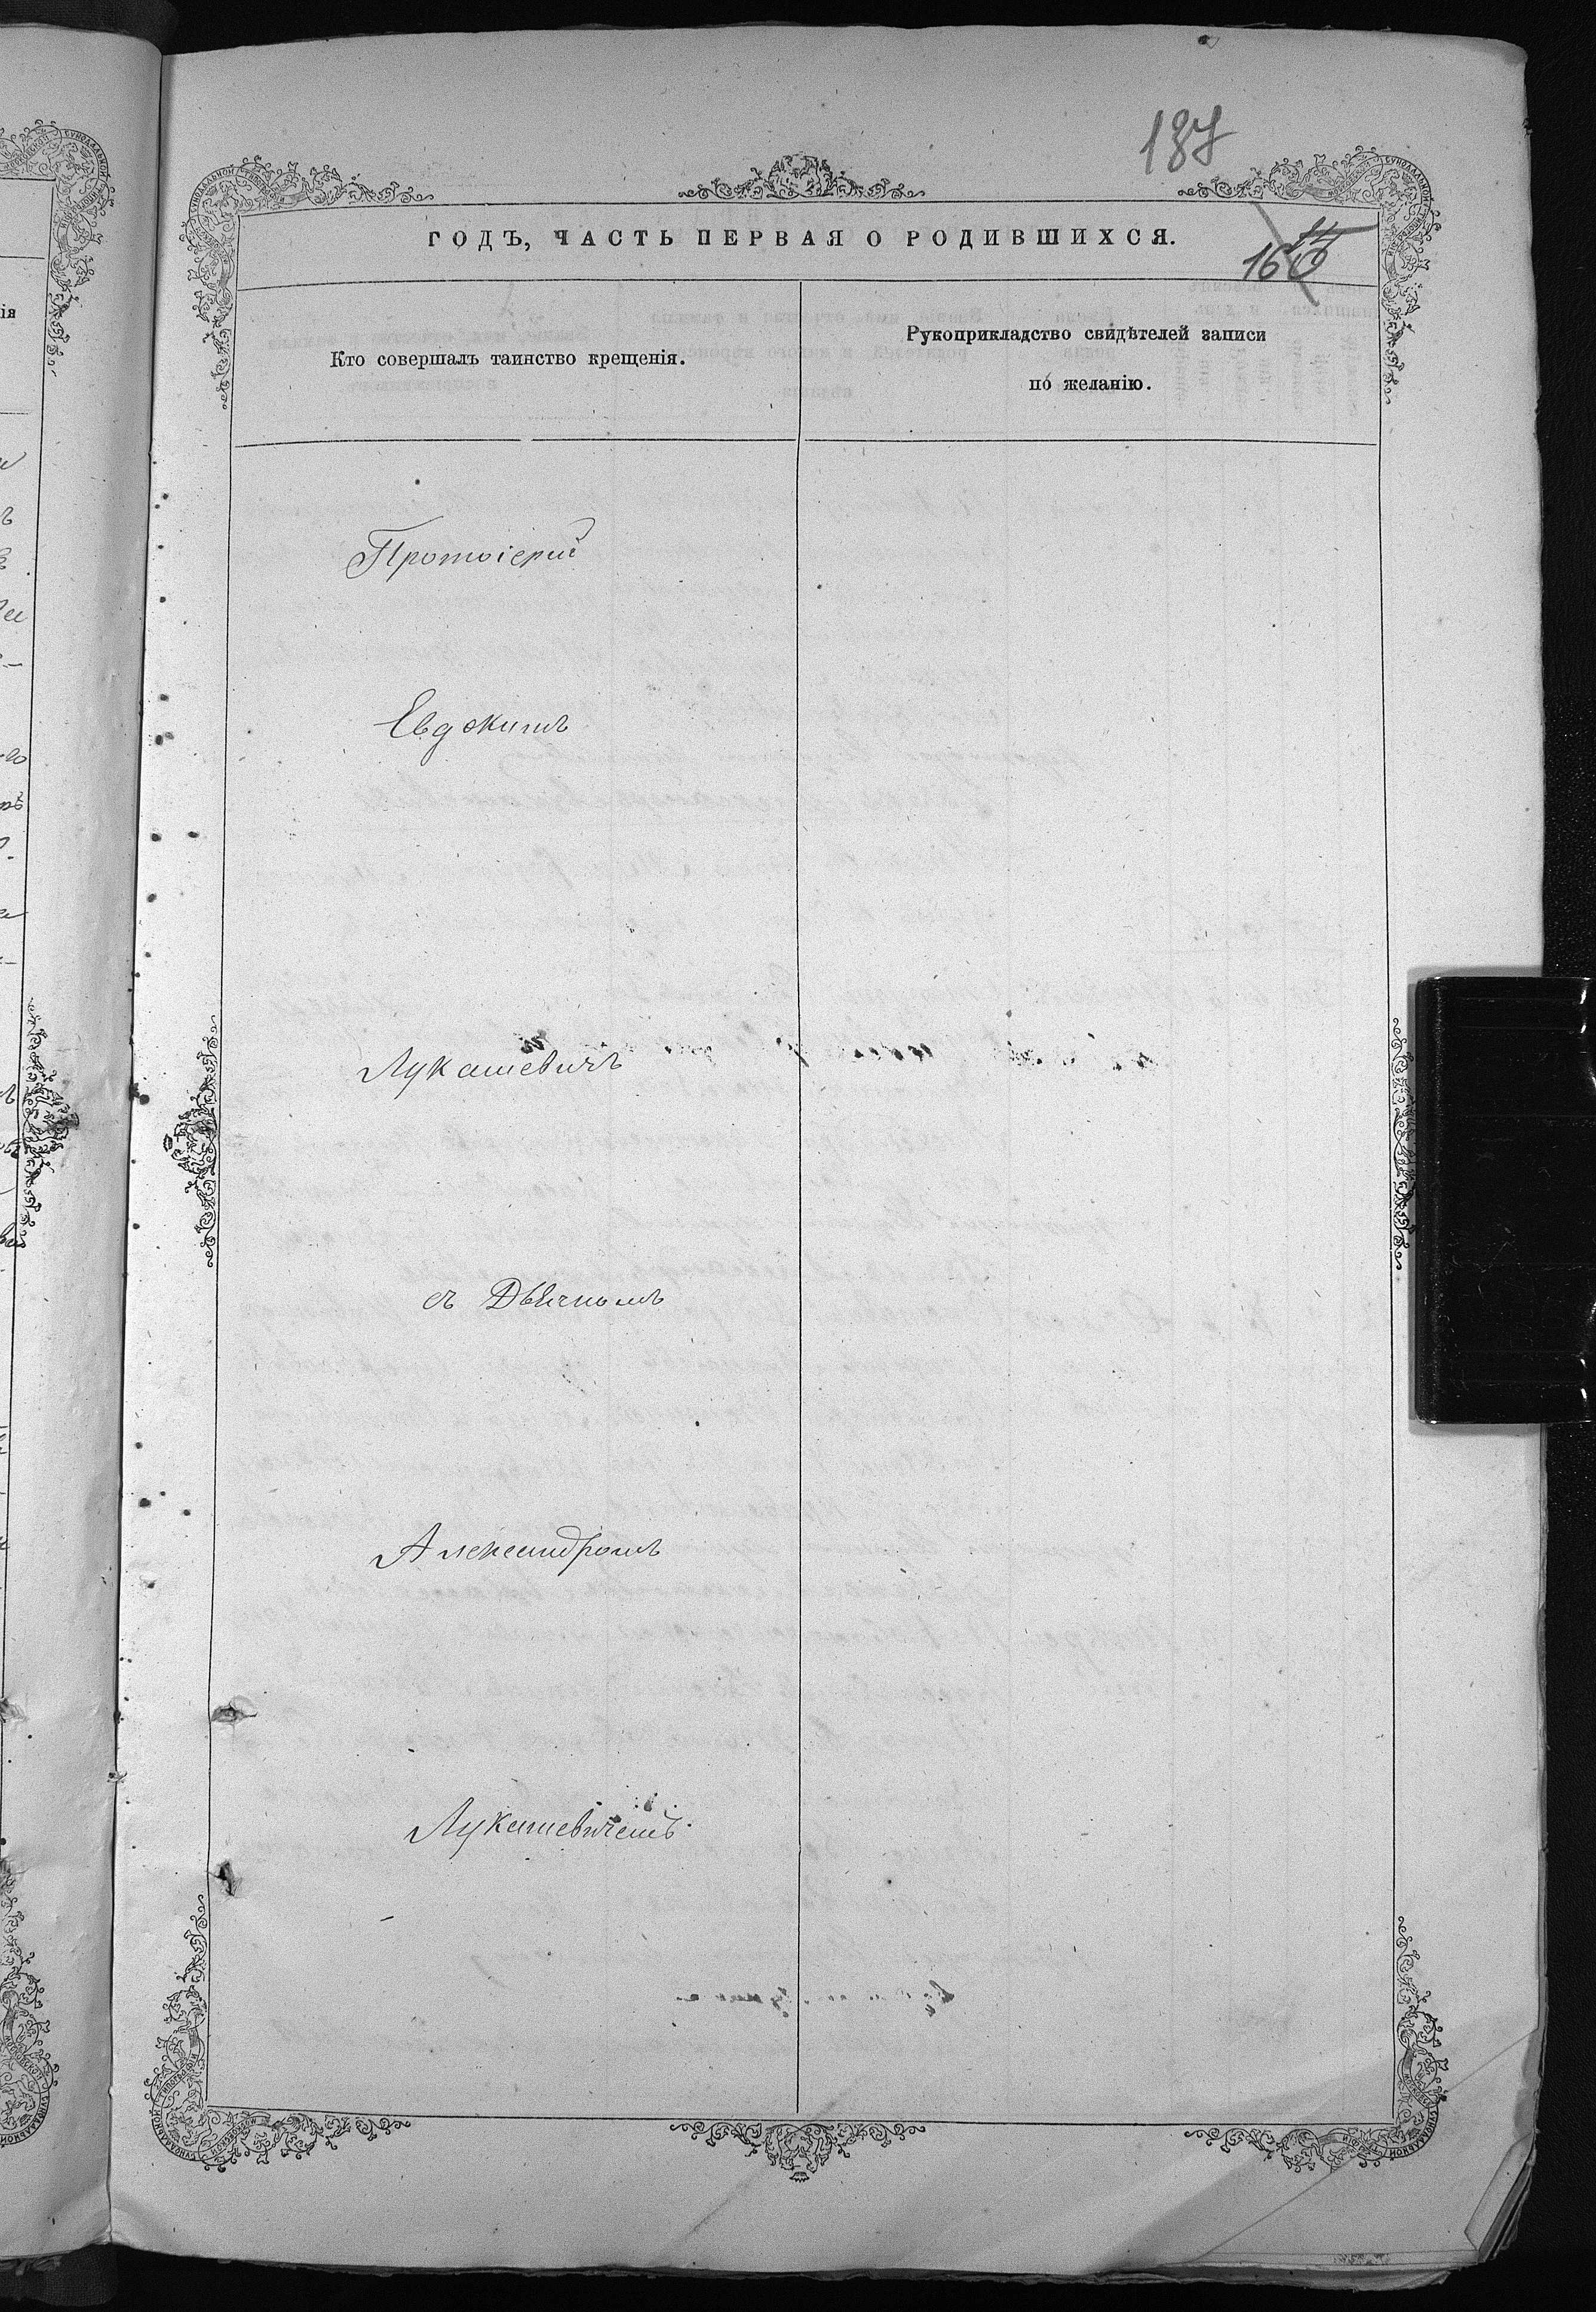 187
ГОДЪ, ЧАСТЬ ПЕРВАЯ О РОДИВШИХСЯ.
Кто совершалъ таинство крещенія.
Рукоприкладство свидѣтелей записи
по желанію.
Протоіерей
Евдокимъ
Лукашевичъ
съ Дьячкомъ
Александромъ
Лукашевичемъ.